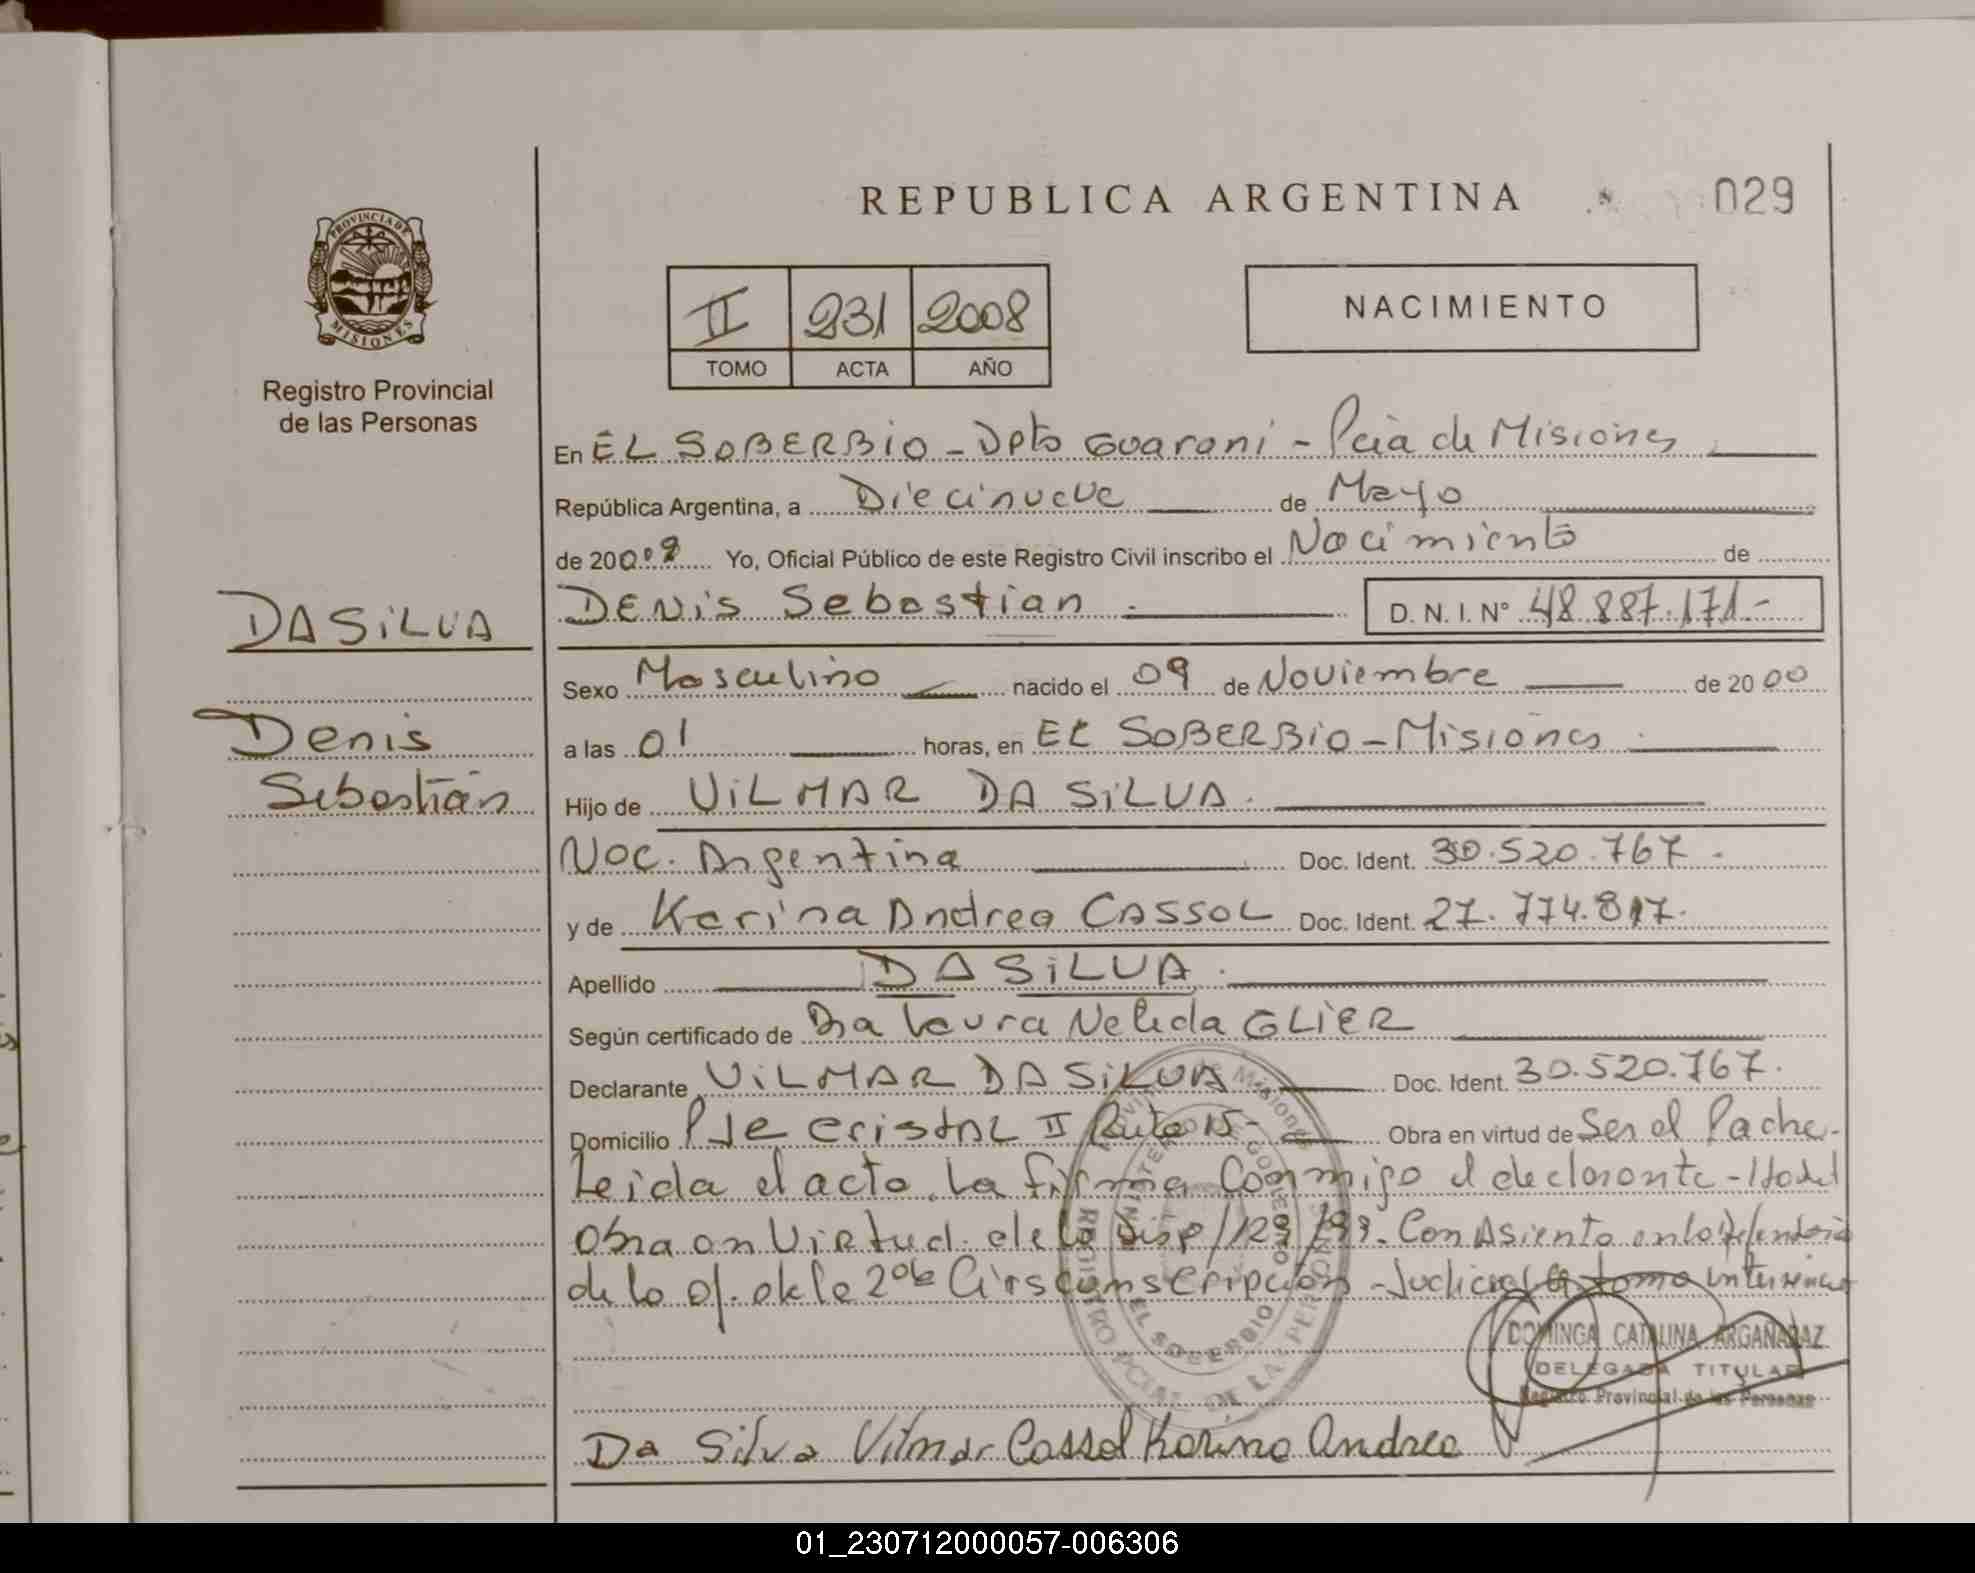 REPUBLICA ARGENTINA
029
PROVINCIA DE
MISIONES
Registro Provincial
de las Personas
II 231 2008
TOMO ACTA AÑO
NACIMIENTO
En EL SOBERBIO - Dpto Guarani - Pcia de Misiones
República Argentina, a Diecinueve de Mayo
de 2008 Yo, Oficial Público de este Registro Civil inscribo el Nacimiento de
DENIS Sebastian D. N. I. Nº 48.887.171-
DA SILVA
Denis
Sebastián
Sexo Masculino nacido el 09 de Noviembre de 2000
a las 01 horas, en EL SOBERBIO - Misiones
Hijo de VILMAR DA SILVA.
Nac. Argentina Doc. Ident. 30.520.767.
y de Karina Andrea CASSOL Doc. Ident. 27.774.817.
Apellido DA SILVA.
Según certificado de Dra Laura Nelida GLIER
Declarante VILMAR DA SILVA Doc. Ident. 30.520.767.
Domicilio Pje Cristal II Ruta 15- Obra en virtud de Ser el Padre.
Leida el acta, la firma Conmigo el declarante -
Obra en Virtud de la Disp/129/99. Con Asiento en la Defensoria
de la of. de la 2da Cirscumscripción - Judicial la tomo intervencion
DOMINGA CATALINA ARGAÑARAZ
DELEGADA TITULAR
Registro Provincial de las Personas
MINISTERIO DE GOBIERNO
EL SOBERBIO
REGISTRO PCIAL DE LAS PERSONAS
Da Silva Vilmar Cassol Karina Andrea
01_230712000057-006306